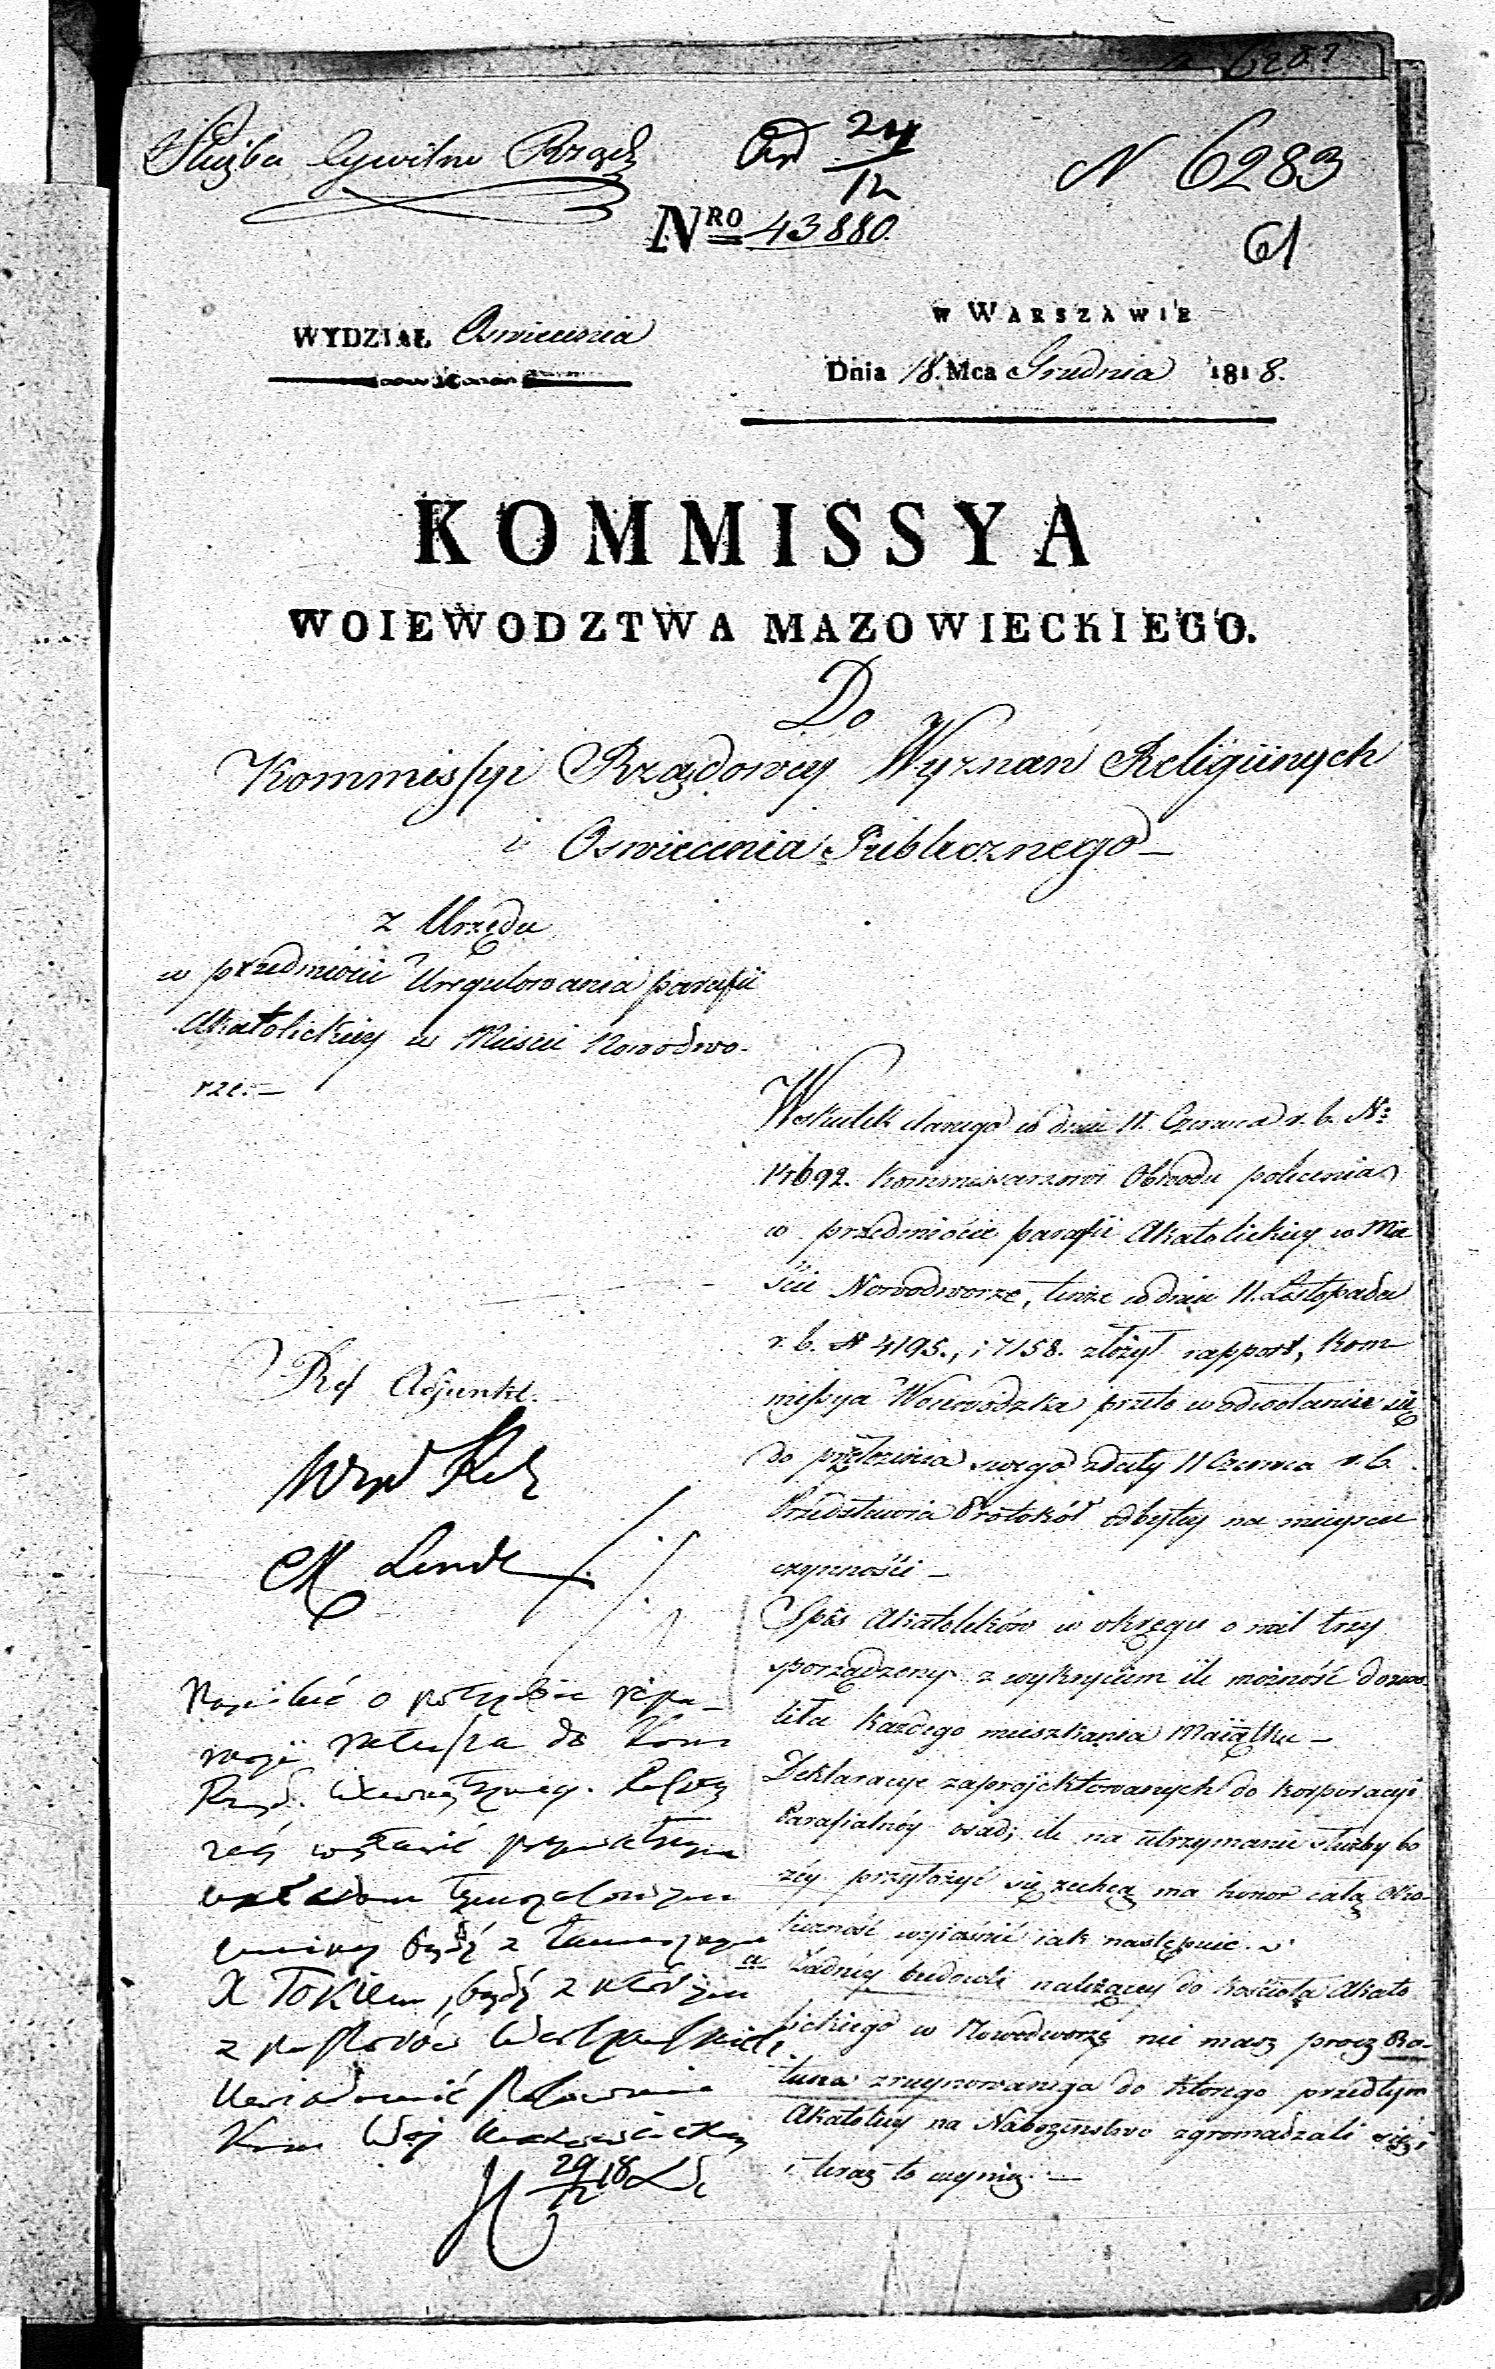 6287
Służba Cywilna Rządz
Od 24/12
N 6283
NRO 43880.
61
WYDZIAŁ Oswiecenia
W WARSZAWIE
Dnia 18. Mca Grudnia 1818.
KOMMISSYA
WOIEWODZTWA MAZOWIECKIEGO.
Do
Kommissyi Rządowey Wyznań Religiinych
i Oswiecenia Publicznego
z Urzędu
w przedmiocie Uregulowania parafii
Akatolickiey w Mieście Nowodwo-
rze. —
Wskutek danego w dniu 11. Czerwca r. b. No
14692. Kommissarzowi Obwodu polecenia
w przedmiocie parafii Akatolickiey w Mie
ście Nowodworze, tenże w dniu 11. Listopada
r. b. N 4195., i 7158. złożył rapport, Kom-
missya Woiewódzka przeto w odwołaniu się
do przełożenia swego z daty 11 Czerwca r. b.
Przedstawia Protokół odbytey na mieyscu
czynności —
Spis Akatolików w okręgu o mil trzy
sporządzony z wykryciem ile możność dozwo-
liła każdego mieszkania Maiątku —
Deklaracye zaprojektowanych do korporacyi
Parafialnéy osad; ile na utrzymanie służby bo
żey przyłożyć się zechcą ma honor całą oko-
liczność wyiaśnić iak następuie.
a. Żadney budowli należącey do kościoła Akato
lickiego w Nowodworze nie masz procz Ra-
tusza zruynowanego do którego przedtym
Akatolicy na Nabożeństwo zgromadzali się i
i teraz to czynią. —
Ref Adjunkt.
M Linde
Napisać o
do Kom
Rząd. Wewnętrzney.
będź z
X Tokiem, będź z którym
z pastorów Warszawskich.
Uwiadomić
Kom Woj Mazowiecką
29/12 18 Lde